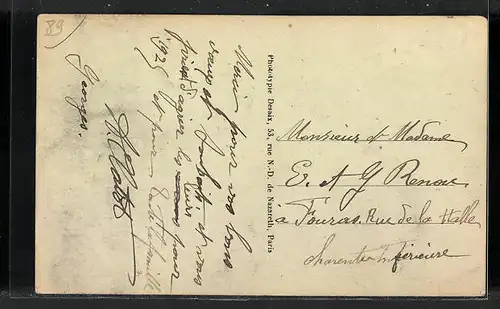 89
Merci pour vos bons
vœux et souhaits et vous
prie d'agréer les leurs pour
1925 et pour toute la famille
Georges.
Phototypie Desaix, 53, rue N.-D. de Nazareth, Paris
Monsieur et Madame
E. et G Renou
à Fouras. Rue de la Halle
Charente inférieure